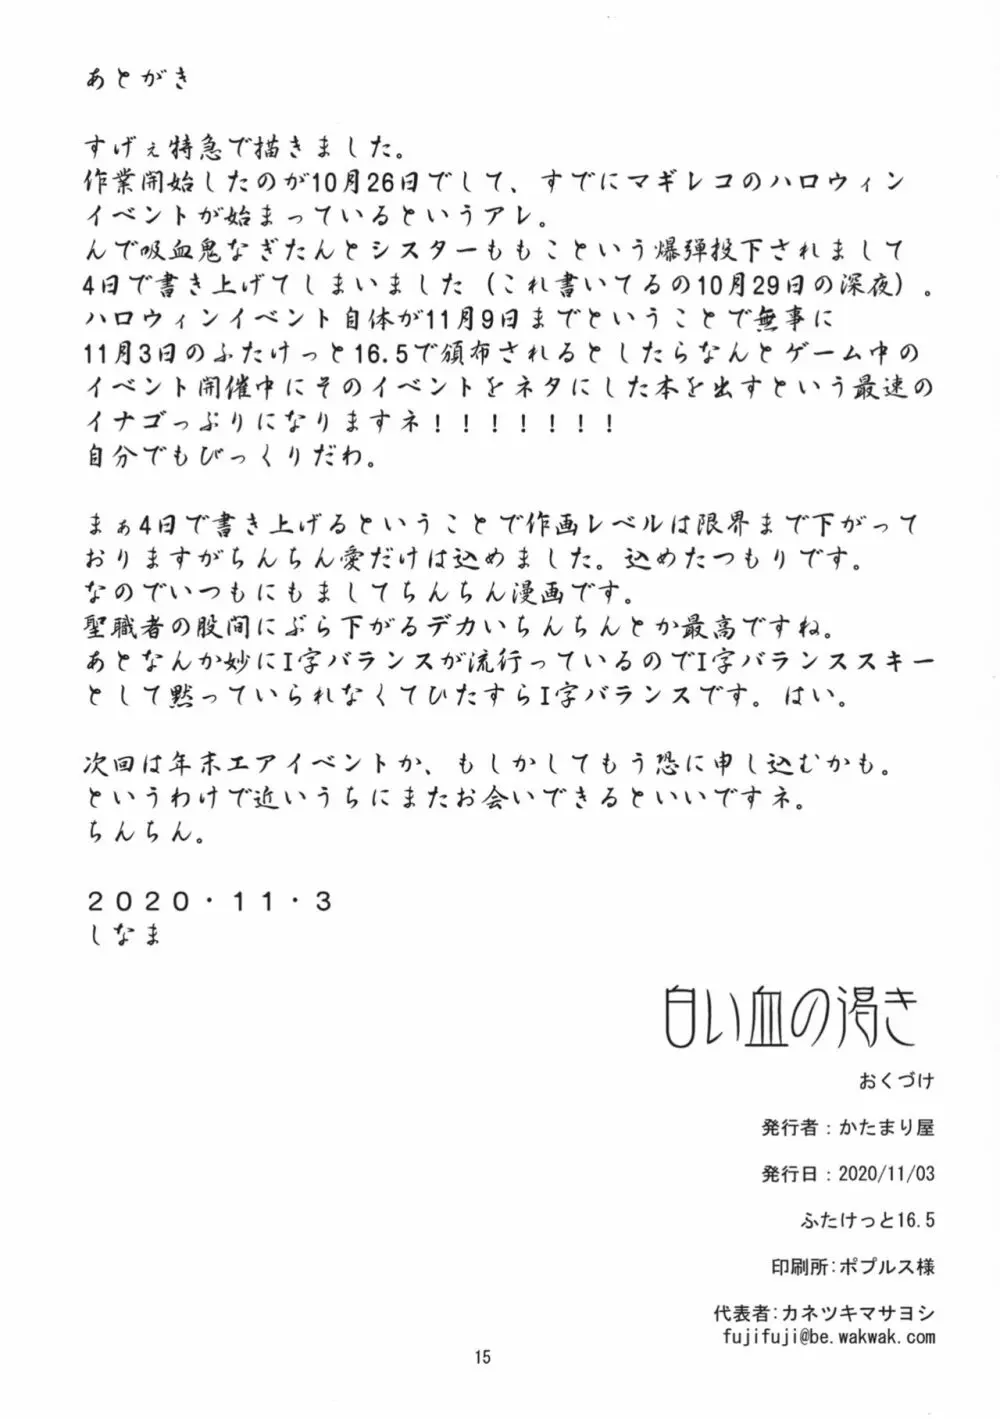 あとがき
すげぇ特急で描きました。
作業開始したのが10月26日でして、すでにマギレコのハロウィン
イベントが始まっているというアレ。
んで吸血鬼なぎたんとシスターももこという爆弾投下されまして
4日で書き上げてしまいました（これ書いてるの10月29日の深夜）。
ハロウィンイベント自体が11月9日までということで無事に
11月3日のふたけっと16.5で頒布されるとしたらなんとゲーム中の
イベント開催中にそのイベントをネタにした本を出すという最速の
イナゴっぷりになりますネ！！！！！！！
自分でもびっくりだわ。
まぁ4日で書き上げるということで作画レベルは限界まで下がって
おりますがちんちん愛だけは込めました。込めたつもりです。
なのでいつもにもましてちんちん漫画です。
聖職者の股間にぶら下がるデカいちんちんとか最高ですね。
あとなんか妙にI字バランスが流行っているのでI字バランススキー
として黙っていられなくてひたすらI字バランスです。はい。
次回は年末エアイベントか、もしかしてもう恐に申し込むかも。
というわけで近いうちにまたお会いできるといいですネ。
ちんちん。
２０２０・１１・３
しなま
白い血の渇き
おくづけ
発行者：かたまり屋
発行日：2020/11/03
ふたけっと16.5
印刷所:ポプルス様
代表者:カネツキマサヨシ
fujifuji@be.wakwak.com
15